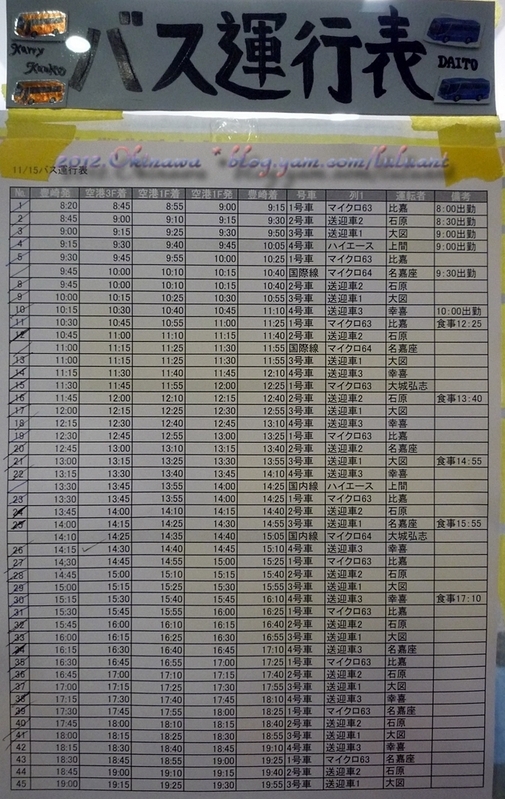 バス運行表
DAITO
2012.Okinawa * blog.yam.com/lxlxant
11/15バス運行表
No. 豊崎発 空港3F着 空港1F着 空港1F発 豊崎着 号車 列1 運転者 備考
1 8:20 8:45 8:55 9:00 9:15 1号車 マイクロ63 比嘉 8:00出勤
2 8:45 9:00 9:10 9:15 9:30 2号車 送迎車2 石原 8:30出勤
3 9:00 9:15 9:25 9:30 9:50 3号車 送迎車1 大図 9:00出勤
4 9:15 9:30 9:40 9:45 10:05 4号車 ハイエース 上間 9:00出勤
5 9:30 9:45 9:55 10:00 10:25 1号車 マイクロ63 比嘉
9:45 10:00 10:10 10:15 10:40 国際線 マイクロ64 名嘉座 9:30出勤
8 9:45 10:00 10:10 10:15 10:40 2号車 送迎車2 石原
9 10:00 10:15 10:25 10:30 10:55 3号車 送迎車1 大図
10 10:15 10:30 10:40 10:45 11:10 4号車 送迎車3 幸喜 10:00出勤
11 10:30 10:45 10:55 11:00 11:25 1号車 マイクロ63 比嘉 食事12:25
12 10:45 11:00 11:10 11:15 11:40 2号車 送迎車2 石原
11:00 11:15 11:25 11:30 11:55 国際線 マイクロ64 名嘉座
13 11:00 11:15 11:25 11:30 11:55 3号車 送迎車1 大図
14 11:15 11:30 11:40 11:45 12:10 4号車 送迎車3 幸喜
15 11:30 11:45 11:55 12:00 12:25 1号車 マイクロ63 大城弘志
16 11:45 12:00 12:10 12:15 12:40 2号車 送迎車2 石原 食事13:40
17 12:00 12:15 12:25 12:30 12:55 3号車 送迎車1 大図
18 12:15 12:30 12:40 12:45 13:10 4号車 送迎車3 幸喜
19 12:30 12:45 12:55 13:00 13:25 1号車 マイクロ63 比嘉
20 12:45 13:00 13:10 13:15 13:40 2号車 送迎車2 名嘉座
21 13:00 13:15 13:25 13:30 13:55 3号車 送迎車1 大図 食事14:55
22 13:15 13:30 13:40 13:45 14:10 4号車 送迎車3 幸喜
13:30 13:45 13:55 14:00 14:25 国内線 ハイエース 上間
23 13:30 13:45 13:55 14:00 14:25 1号車 マイクロ63 比嘉
24 13:45 14:00 14:10 14:15 14:40 2号車 送迎車2 石原
25 14:00 14:15 14:25 14:30 14:55 3号車 送迎車1 名嘉座 食事15:55
14:10 14:25 14:35 14:40 15:05 国内線 マイクロ64 大城弘志
26 14:15 14:30 14:40 14:45 15:10 4号車 送迎車3 幸喜
27 14:30 14:45 14:55 15:00 15:25 1号車 マイクロ63 比嘉
28 14:45 15:00 15:10 15:15 15:40 2号車 送迎車2 石原
29 15:00 15:15 15:25 15:30 15:55 3号車 送迎車1 大図
30 15:15 15:30 15:40 15:45 16:10 4号車 送迎車3 幸喜 食事17:10
31 15:30 15:45 15:55 16:00 16:25 1号車 マイクロ63 比嘉
32 15:45 16:00 16:10 16:15 16:40 2号車 送迎車2 石原
33 16:00 16:15 16:25 16:30 16:55 3号車 送迎車1 大図
34 16:15 16:30 16:40 16:45 17:10 4号車 送迎車3 名嘉座
35 16:30 16:45 16:55 17:00 17:25 1号車 マイクロ63 比嘉
36 16:45 17:00 17:10 17:15 17:40 2号車 送迎車2 石原
37 17:00 17:15 17:25 17:30 17:55 3号車 送迎車1 大図
38 17:15 17:30 17:40 17:45 18:10 4号車 送迎車3 幸喜
39 17:30 17:45 17:55 18:00 18:25 1号車 マイクロ63 名嘉座
40 17:45 18:00 18:10 18:15 18:40 2号車 送迎車2 石原
41 18:00 18:15 18:25 18:30 18:55 3号車 送迎車1 大図
42 18:15 18:30 18:40 18:45 19:10 4号車 送迎車3 幸喜
43 18:30 18:45 18:55 19:00 19:25 1号車 マイクロ63 名嘉座
44 18:45 19:00 19:10 19:15 19:40 2号車 送迎車2 石原
45 19:00 19:15 19:25 19:30 19:55 3号車 送迎車1 大図